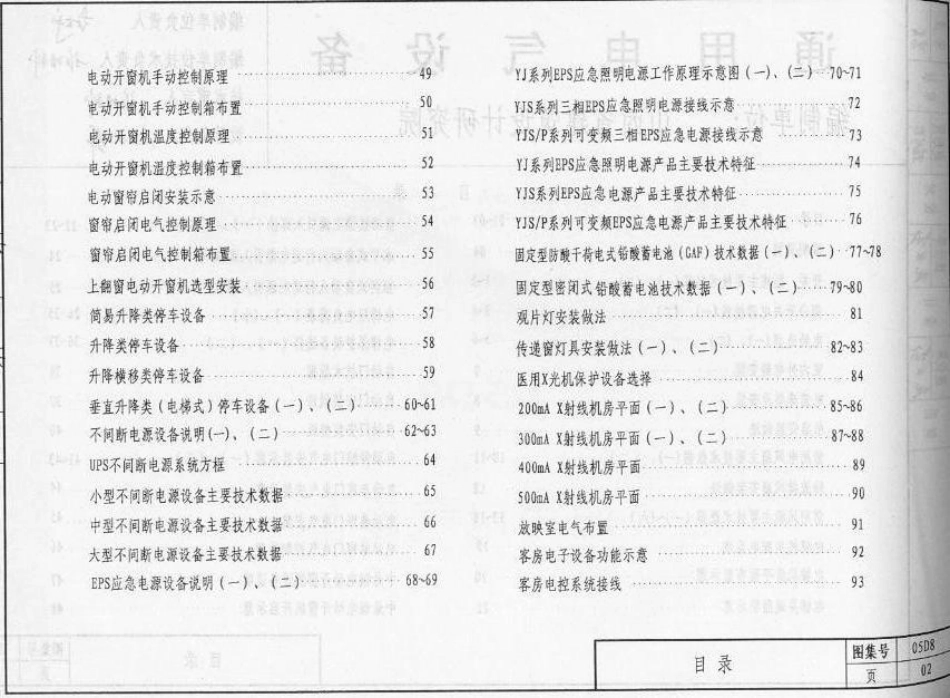 电动开窗机手动控制原理 49
电动开窗机手动控制箱布置 50
电动开窗机温度控制原理 51
电动开窗机温度控制箱布置 52
电动窗帘启闭安装示意 53
窗帘启闭电气控制原理 54
窗帘启闭电气控制箱布置 55
上翻窗电动开窗机选型安装 56
简易升降类停车设备 57
升降类停车设备 58
升降横移类停车设备 59
垂直升降类(电梯式)停车设备(一)、(二) 60~61
不间断电源设备说明(一)、(二) 62~63
UPS不间断电源系统方框 64
小型不间断电源设备主要技术数据 65
中型不间断电源设备主要技术数据 66
大型不间断电源设备主要技术数据 67
EPS应急电源设备说明(一)、(二) 68~69
YJ系列EPS应急照明电源工作原理示意图(一)、(二) 70~71
YJS系列三相EPS应急照明电源接线示意 72
YJS/P系列可变频三相EPS应急电源接线示意 73
YJ系列EPS应急照明电源产品主要技术特征 74
YJS系列EPS应急电源产品主要技术特征 75
YJS/P系列可变频EPS应急电源产品主要技术特征 76
固定型防酸干荷电式铅酸蓄电池(GAF)技术数据(一)、(二) 77~78
固定型密闭式铅酸蓄电池技术数据(一)、(二) 79~80
观片灯安装做法 81
传递窗灯具安装做法(一)、(二) 82~83
医用X光机保护设备选择 84
200mA X射线机房平面(一)、(二) 85~86
300mA X射线机房平面(一)、(二) 87~88
400mA X射线机房平面 89
500mA X射线机房平面 90
放映室电气布置 91
客房电子设备功能示意 92
客房电控系统接线 93
目录
图集号 05D8
页 02